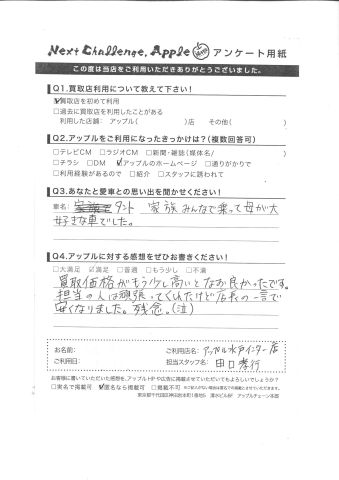 Next Challenge. Apple アンケート用紙
この度は当店をご利用いただきありがとうございました。
Q1.買取店利用について教えて下さい!
☑買取店を初めて利用
□過去に買取店を利用したことがある
利用した店舗: アップル( )店 その他( )
Q2.アップルをご利用になったきっかけは?(複数回答可)
□テレビCM □ラジオCM □新聞・雑誌(媒体名/ )
□チラシ □DM ☑アップルのホームページ □通りがかりで
□利用経験があるので □紹介 □スタッフに誘われて
Q3.あなたと愛車との思い出を聞かせてください!
車名: タント 家族みんなで乗って母が大
好きな車でした。
Q4.アップルに対する感想をぜひお書きください!
□大満足 ☑満足 □普通 □もう少し □不満
買取価格がもう少し高いとなお良かったです。
担当の人は頑張ってくれたけど店長の一言で
安くなりました。残念。(泣)
お名前: ご利用店名: アップル水戸インター店
ご利用日: 担当スタッフ名: 田口孝行
お客様に書いていただいた感想を、アップルHPや広告に掲載させていただいてもよろしいでしょうか?
□実名で掲載可 ☑匿名なら掲載可 □掲載不可
アップルチェーン本部